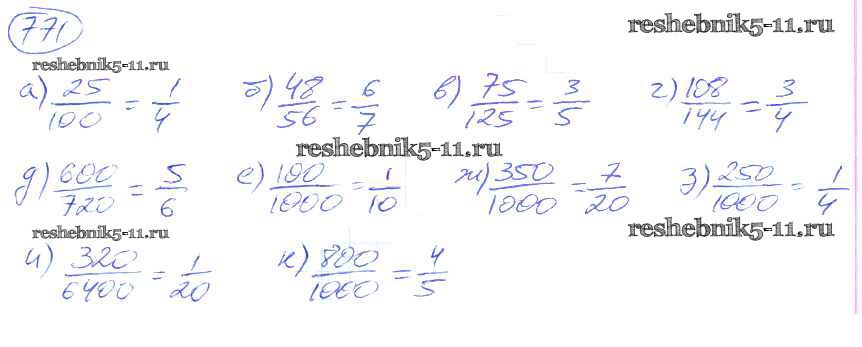 771
reshebnik5-11.ru
reshebnik5-11.ru
а) 25/100 = 1/4 б) 48/56 = 6/7 в) 75/125 = 3/5 г) 108/144 = 3/4
reshebnik5-11.ru
д) 600/720 = 5/6 е) 100/1000 = 1/10 ж) 350/1000 = 7/20 з) 250/1000 = 1/4
reshebnik5-11.ru
reshebnik5-11.ru
и) 320/6400 = 1/20 к) 800/1000 = 4/5